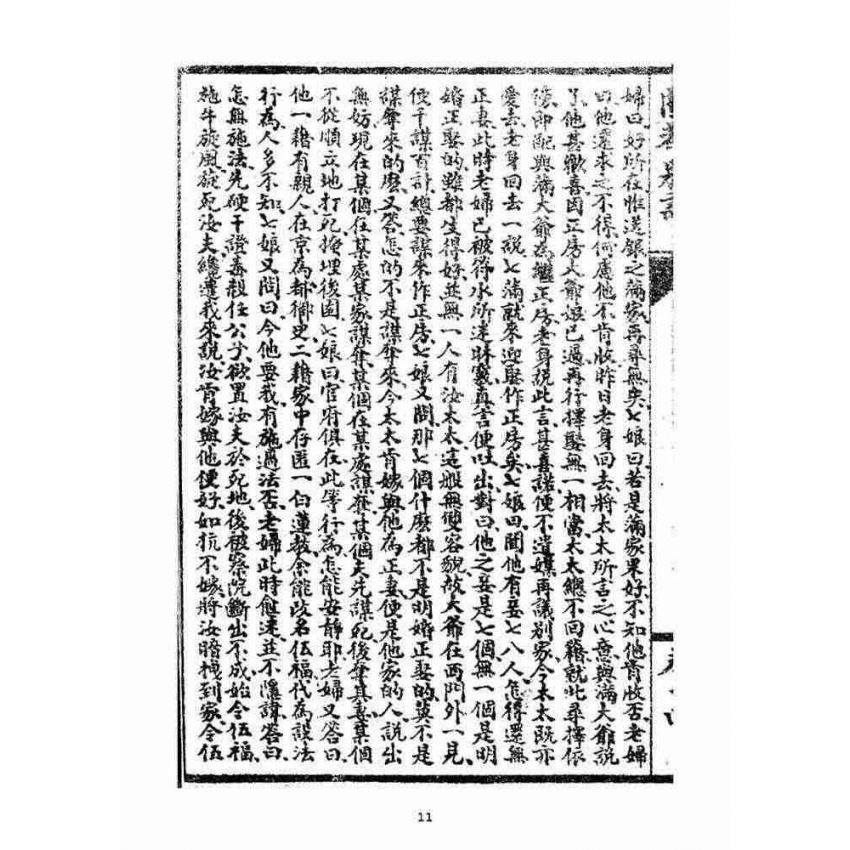 婦曰好所在惟送銀之滿家再尋無矣七娘曰若是滿家果好不知他肯收否老婦
曰他還求之不得何慮他不肯收昨日老身回去將太太所言之心意與滿大爺說
了他甚歡喜因正房大爺娘已過再行擇娶無一相當太太總不回籍就此尋擇依
後即配與滿大爺為繼正房老身說此言甚喜諾便不遣媒再議別家今太太既亦
愛去老身回去一說七滿就來迎娶作正房矣七娘曰聞他有妾七八人怎得還無
正妻此時老婦已被符水所迷昧竅真言便吐出對曰他之妾是七個無一個是明
婚正娶的雖都生得好並無一人有汝太太這般無雙容貌故大爺在西門外一見
便千謀百計總要謀來作正房七娘又問那七個什麼都不是明婚正娶的莫不是
謀奪來的麼又答怎的不是謀奪來今太太肯嫁與他為正妻便是他家的人說出
無妨現在某個在某處某家謀奪某個在某處謀發某個夫先謀死後奪其妻某個
不從順立地打死掩埋後園七娘曰官府俱在此等行為怎能安靜耶老婦又答曰
他一藉有親人在京為都御史二藉家中存匿一白蓮教余能改名伍福代為設法
行為人多不知七娘又問曰今他要我有施過法否老婦此時愈迷並不隱諱答曰
怎無施法先硬干證毒殺任公子欲置汝夫於死地後被察院斷出不成始令伍福
施牛旋風旋死汝夫纔遣我來說汝肯嫁與他便好如抗不嫁將汝暗拽到家令伍
11